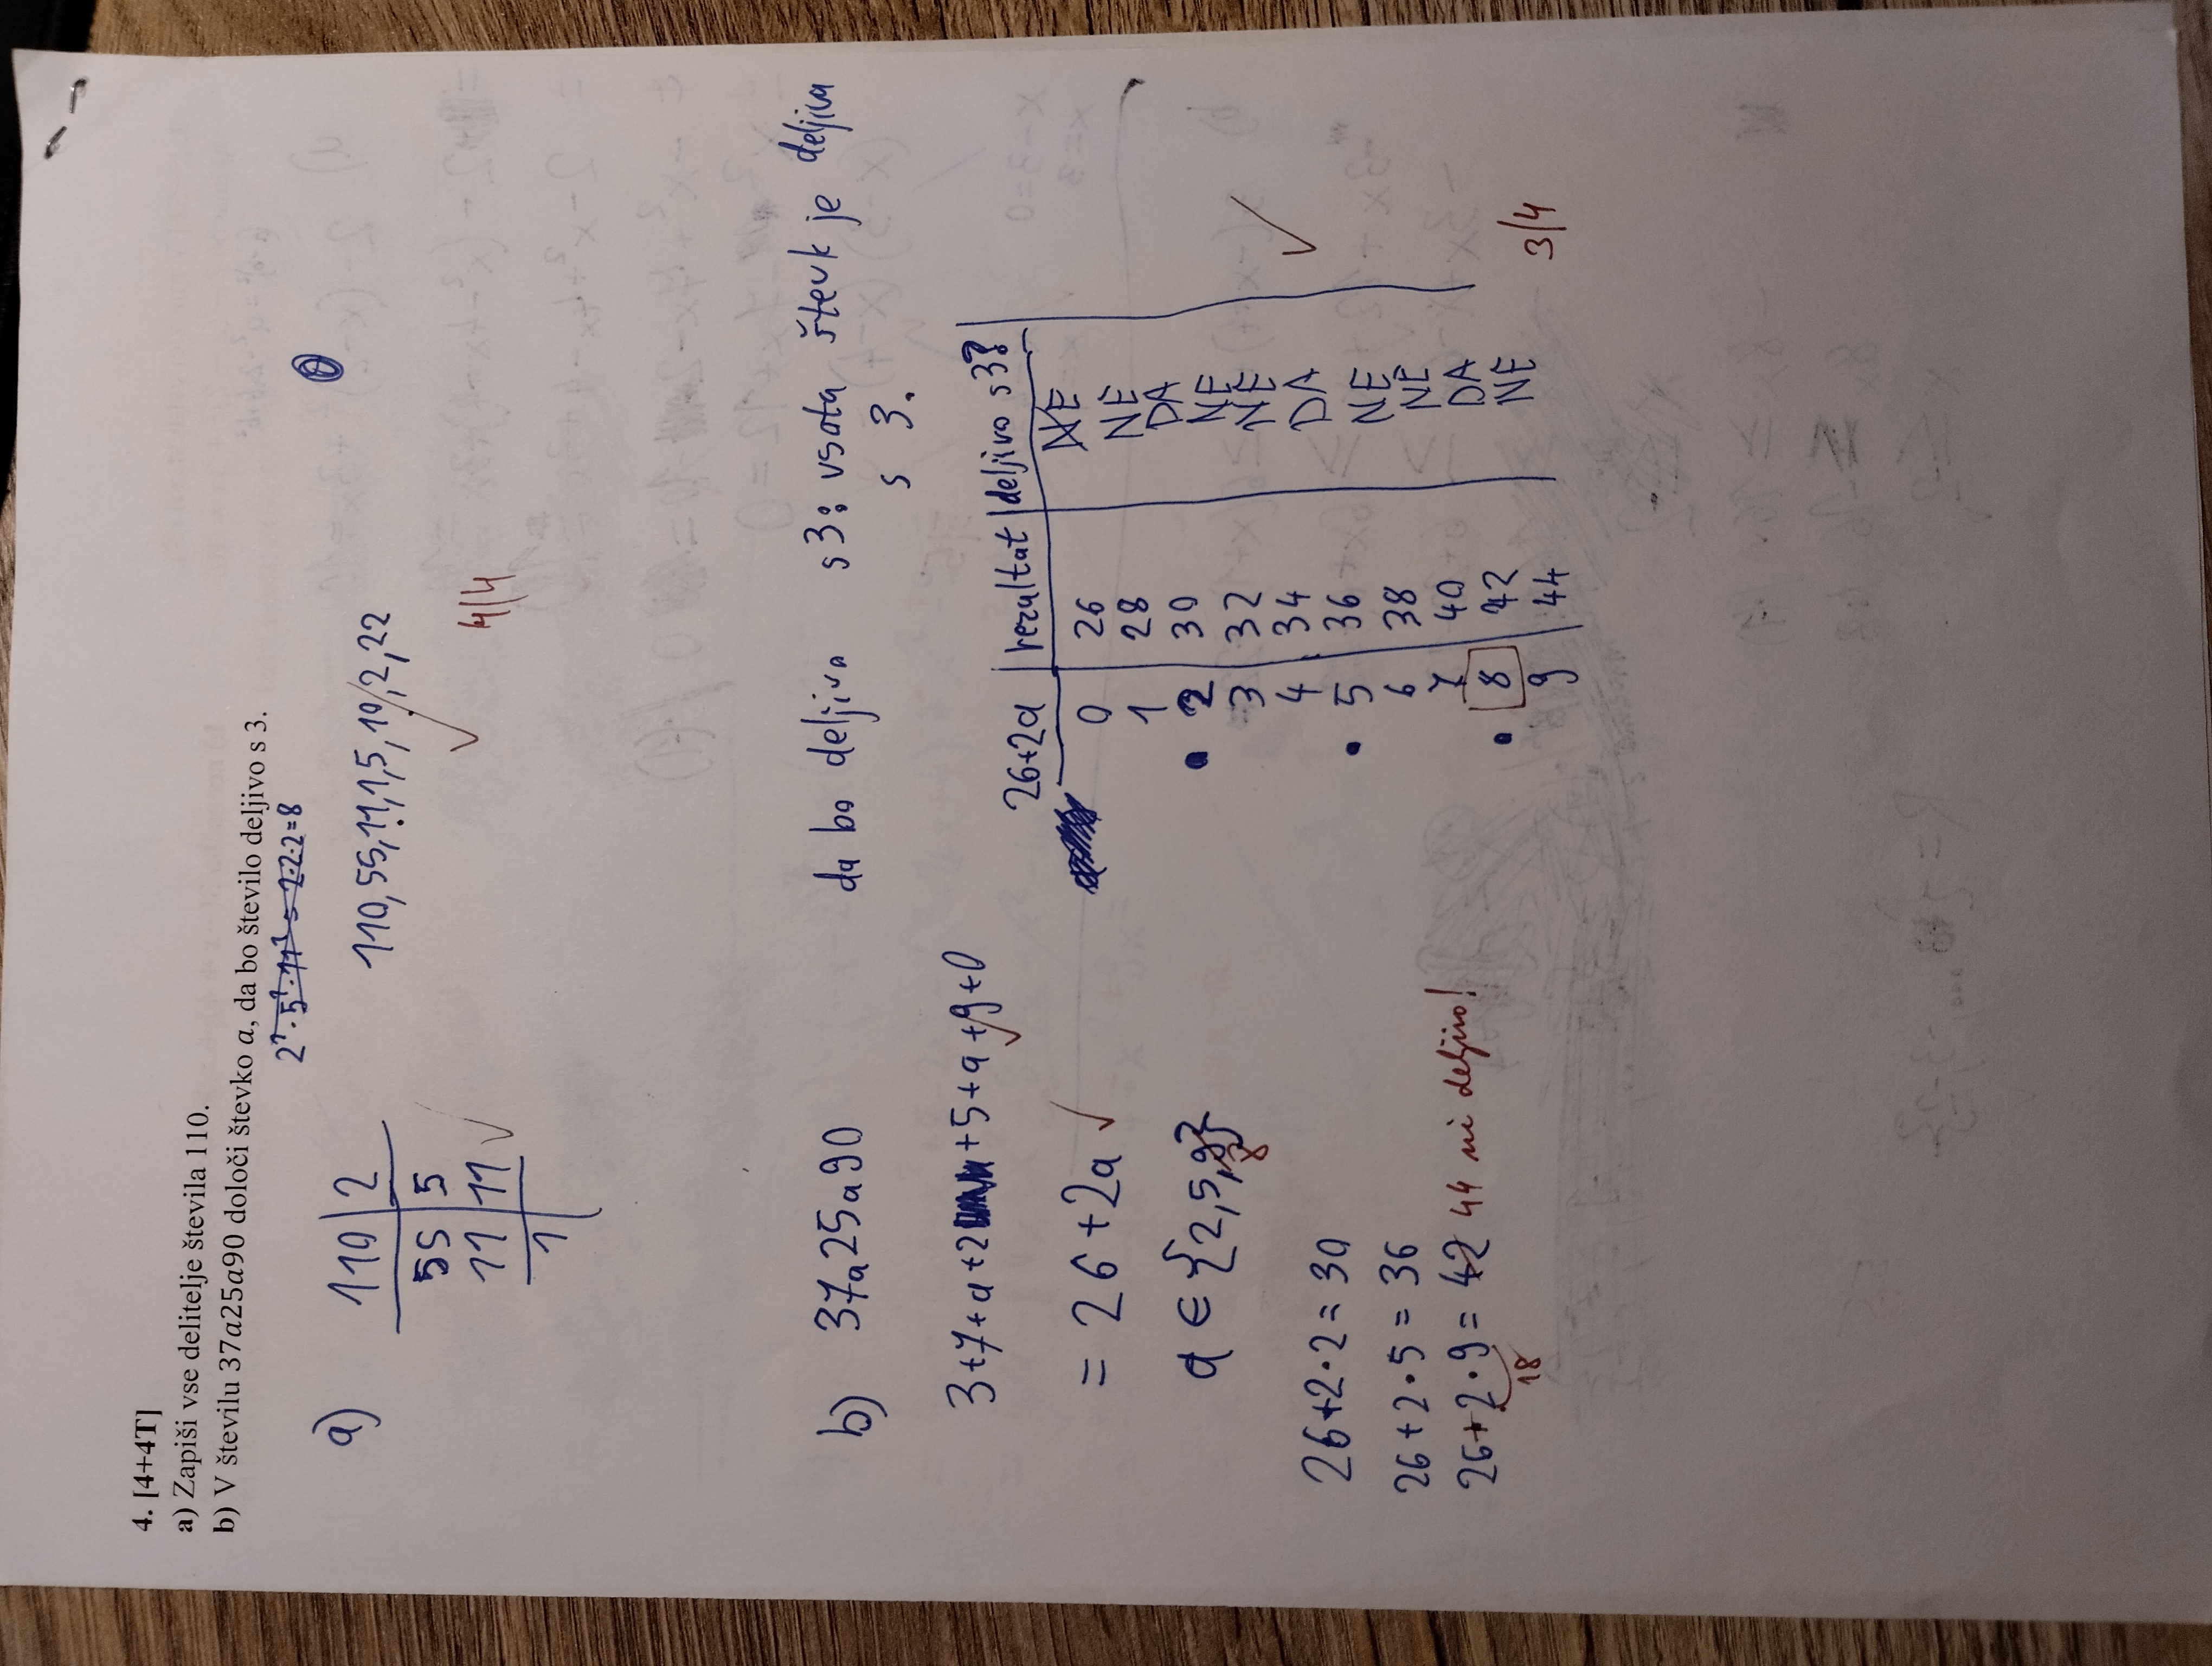 4. [4+4T]
a) Zapiši vse delitelje števila 110.
b) V številu 37a25a90 določi števko a, da bo število deljivo s 3.
2¹·5¹·11¹ = 2·2·2=8
a)
110 | 2
55 | 5
11 | 11
1
110, 55, 11, 1, 5, 10, 2, 22
4/4
b) 37a25a90
da bo deljivo s 3: vsota števk je deljiva
s 3.
3+7+a+2+5+a+9+0
= 26+2a
a ∈ {2,5,9}
8
26+2·2= 30
26+2·5 = 36
26+2·9 = 42 44 ni deljivo!
18
26+2a | rezultat | deljivo s 3?
0 26 NE
1 28 NE
2 30 DA
3 32 NE
4 34 NE
5 36 DA
6 38 NE
7 40 NE
8 42 DA
9 44 NE
3/4